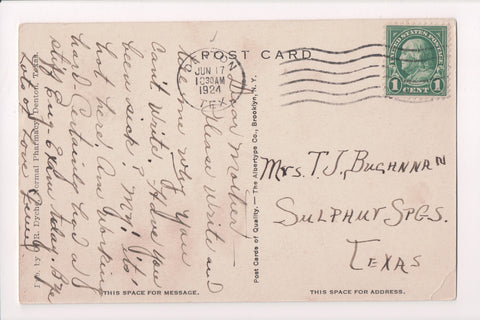 POST CARD
JUN 17
10 30AM
1924
TEX.
UNITED STATES POSTAGE
1 CENT 1
Dear Mother—
Please write and
tell me why you
can't write. Have you
been sick? My! it's
hot here. Am working
hard. Certainly had a
stiff Eng- Exam today. Bye
Lots of Love
Mrs. T. J. Buchannan
Sulphur Spgs.
Texas
Post Cards of Quality. — The Albertype Co., Brooklyn, N. Y.
R. Dyche, Normal Pharmacy, Denton, Texas.
THIS SPACE FOR MESSAGE.
THIS SPACE FOR ADDRESS.